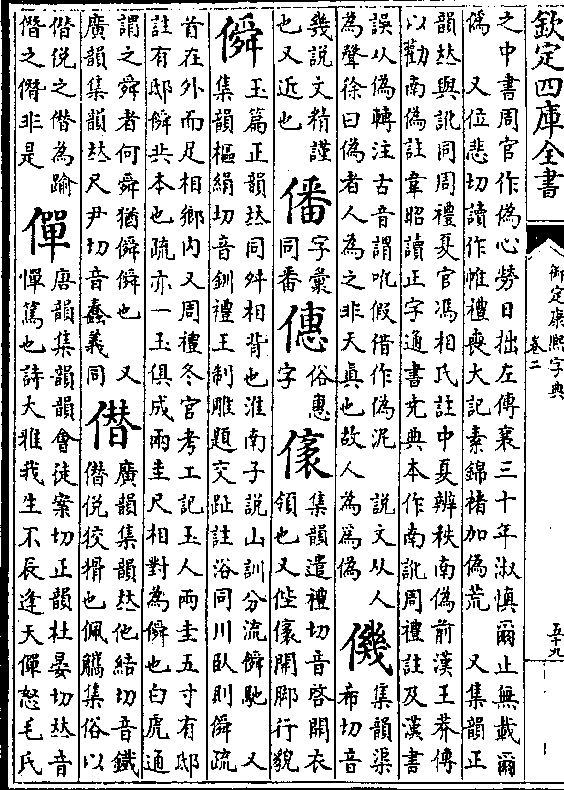 欽定四庫全書
御定康熙字典
卷二
五十九
之中書周官作偽心勞日拙左傳襄三十年淑慎爾止無載爾
偽 又位悲切讀作帷禮喪大記素錦褚加偽荒 又集韻正
韻𠀤與訛同周禮夏官馮相氏註中夏辨秩南偽前漢王莽傳
以勸南偽註韋昭讀正字通書堯典本作南訛周禮註及漢書
誤以偽轉注古音謂吪假借作偽泥 說文从人
為聲徐曰偽者人為之非天真也故人為爲偽
僟
集韻渠
希切音
幾說文精謹
也又近也
僠
字彙
同番
僡
俗惠
字
集韻遣禮切音啓開衣
領也又開腳行貌
僢
玉篇正韻𠀤同舛相背也淮南子說山訓分流僢馳 又
集韻樞絹切音釧禮王制雕題交趾註浴同川臥則僢疏
首在外而足相鄉内又周禮冬官考工記玉人兩圭五寸有邸
註有邸僢共本也疏亦一玉俱成兩圭尺相對為僢也白虎通
謂之舜者何舜猶僢僢也 又
廣韻集韻𠀤尺尹切音蠢義同
僣
廣韻集韻𠀤他結切音鐵
僣侻狡猾也佩觿集俗以
僣侻之僣為踰
僭之僭非是
僤
唐韻集韻韻會徒案切正韻杜晏切𠀤音
憚篤也詩大雅我生不辰逢天僤怒毛氏